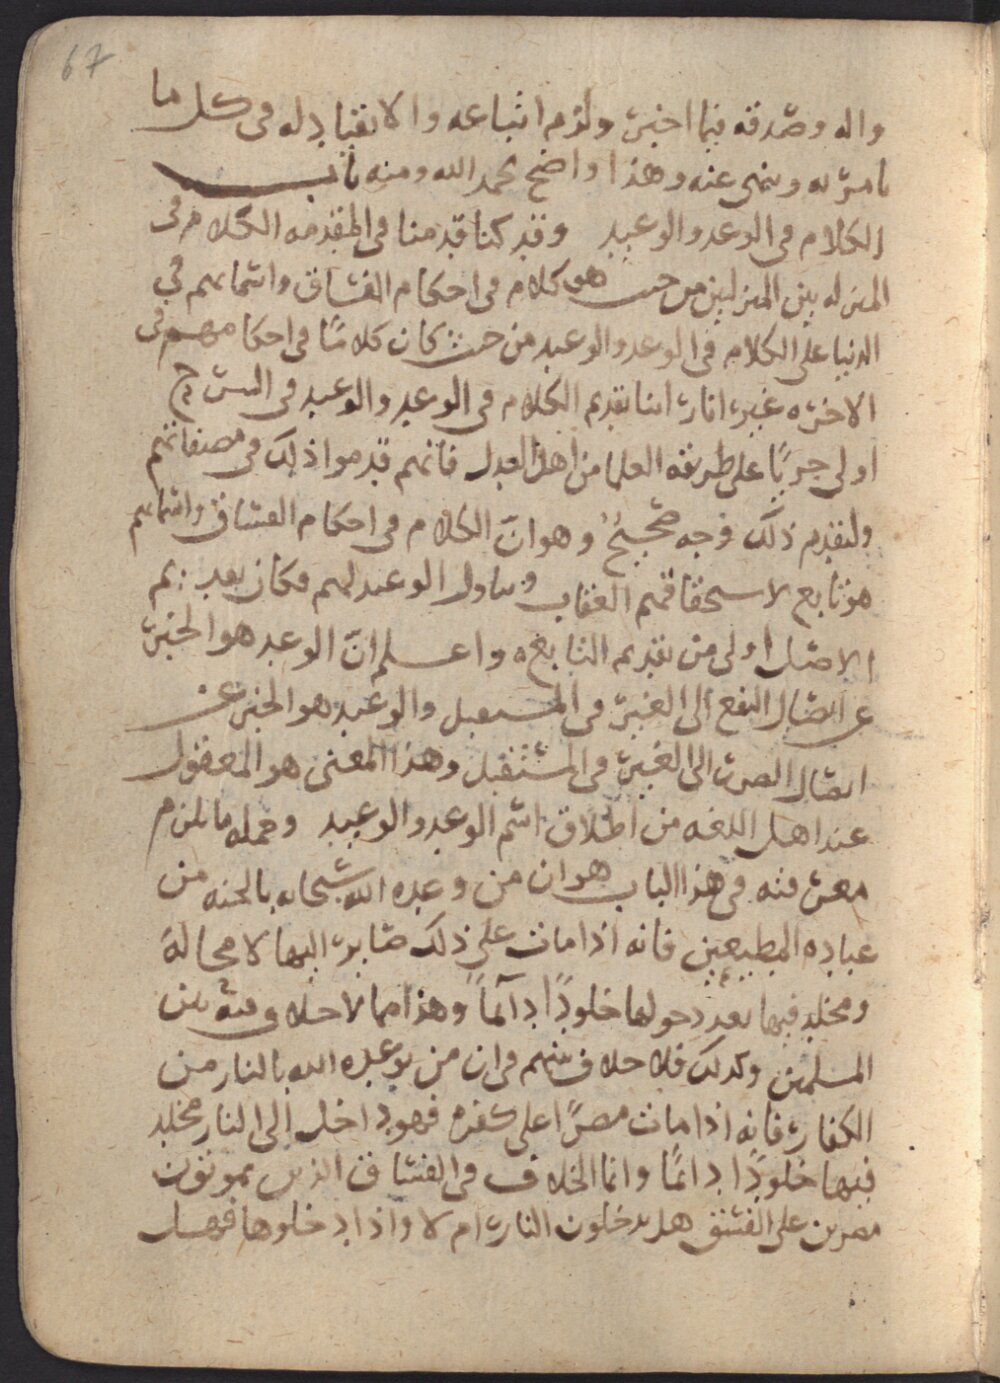 67
واله وصدقه فيما اخبر ولزم اتباعه والانقياد له في كل ما
يامر به وينهى عنه وهذا واضح بحمد الله ومنه باب
الكلام في الوعد والوعيد وقد كنا قدمنا في المقدمه الكلام في
المنزله بين المنزلتين من حيث هو كلام في احكام الفساق واسمائهم في
الدنيا على الكلام في الوعد والوعيد من حيث كان كلامًا في احكامهم في
الاخره غير انا راينا تقديم الكلام في الوعد والوعيد في الشرح
اولى جريًا على طريقه العلما من اهل العدل فانهم قدموا ذلك في مصنفاتهم
ولتقديم ذلك وجه صحيحٌ وهو انّ الكلام في احكام الفساق واسمائهم
هو تابع لاستحقاقهم العقاب وتناول الوعيد لهم فكان تقديم
الاصل اولى من تقديم التابع ه واعلم انّ الوعد هو الخبر
عن ايصال النفع الى الغير في المستقبل والوعيد هو الخبر عن
ايصال الضرر الى الغير في المستقبل وهذا المعنى هو المعقول
عند اهل اللغه من اطلاق اسم الوعد والوعيد وجمله ما يلزم
معرفته في هذا الباب هو ان من وعده الله سبحانه بالجنه من
عباده المطيعين فانه اذا مات على ذلك صاير اليها لا محالةَ
ومخلد فيها بعد دخولها خلودًا دآئمًا وهذا مما لا خلاف فيه بين
المسلمين وكذلك فلا خلاف بينهم في ان من توعده الله بالنار من
الكفار فانه اذا مات مصرًا على كفره فهو داخل الى النار مخلد
فيها خلودًا دائمًا وانما الخلاف في الفساق الذين يموتون
مصرين على الفسق هل يدخلون النار ام لا واذا دخلوها فهل